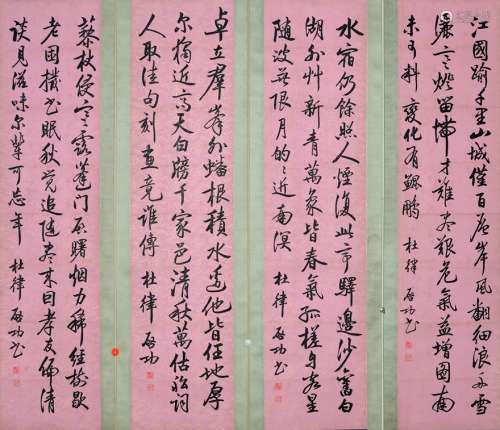 江國踰千里山城僅百層岸風翻細浪舟雪
灑寒燈留滯才難盡艱危氣益增圖南
未可料變化有鯤鵬 杜律 啟功書
水宿仍餘照人煙復此亭驛邊沙舊白
湖外草新青萬象皆春氣孤槎自客星
隨波無限月的的近南溟 杜律 啟功書
卓立群峯外蟠根積水邊他皆任地厚
爾獨近高天白牓千家邑清秋萬估船詞
人取佳句刻畫竟誰傳 杜律 啟功
藜杖侵寒露蓬門啟曙烟力稀經樹歇
老困撥書眠秋覺追隨盡來因孝友偏清
談見滋味爾輩可忘年 杜律 啟功書